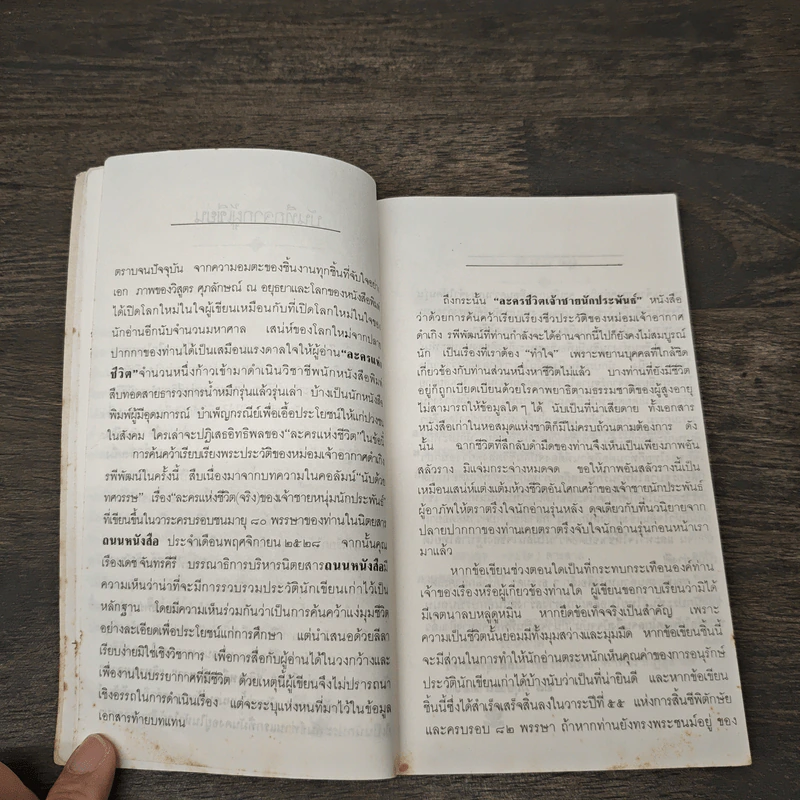 ตราบจนปัจจุบัน จากความอมตะของชิ้นงานทุกชิ้นที่จับใจอย่าง
เอก ภาพของวิสูตร ศุภลักษณ์ ณ อยุธยาและโลกของหนังสือพิมพ์
ได้เปิดโลกใหม่ในใจผู้เขียนเหมือนกับที่เปิดโลกใหม่ในใจของ
นักอ่านอีกนับจำนวนมหาศาล เสน่ห์ของโลกใหม่จากปลาย
ปากกาของท่านได้เป็นเสมือนแรงดาลใจให้ผู้อ่าน“ละครแห่ง
ชีวิต”จำนวนหนึ่งก้าวเข้ามาดำเนินวิชาชีพนักหนังสือพิมพ์
สืบทอดสายธารวงการน้ำหมึกรุ่นแล้วรุ่นเล่า บ้างเป็นนักหนังสือ
พิมพ์ผู้มีอุดมการณ์ บำเพ็ญกรณีย์เพื่อเอื้อประโยชน์ให้แก่ปวงชน
ในสังคม ใครเล่าจะปฏิเสธอิทธิพลของ“ละครแห่งชีวิต”ในข้อนี้
การค้นคว้าเรียบเรียงพระประวัติของหม่อมเจ้าอากาศดำเกิง
รพีพัฒน์ในครั้งนี้ สืบเนื่องมาจากบทความในคอลัมน์“นับด้วย
ทศวรรษ” เรื่อง“ละครแห่งชีวิต(จริง)ของเจ้าชายหนุ่มนักประพันธ์”
ที่เขียนขึ้นในวาระครบรอบชนมายุ ๘๐ พรรษาของท่านในนิตยสาร
ถนนหนังสือ ประจำเดือนพฤศจิกายน ๒๕๒๘ จากนั้นคุณ
เรืองเดช จันทรคีรี บรรณาธิการบริหารนิตยสารถนนหนังสือมี
ความเห็นว่าน่าที่จะมีการรวบรวมประวัตินักเขียนเก่าไว้เป็น
หลักฐาน โดยมีความเห็นร่วมกันว่าเป็นการค้นคว้าแง่มุมชีวิต
อย่างละเอียดเพื่อประโยชน์แก่การศึกษา แต่นำเสนอด้วยลีลา
เรียบง่ายมิใช่เชิงวิชาการ เพื่อการสื่อกับผู้อ่านได้ในวงกว้างและ
เพื่องานในบรรยากาศที่มีชีวิต ด้วยเหตุนี้ผู้เขียนจึงไม่ปรารถนา
เชิงอรรถในการดำเนินเรื่อง แต่จะระบุแห่งหนที่มาไว้ในข้อมูล
เอกสารท้ายบทแทน
ถึงกระนั้น “ละครชีวิตเจ้าชายนักประพันธ์” หนังสือ
ว่าด้วยการค้นคว้าเรียบเรียงชีวประวัติของหม่อมเจ้าอากาศ
ดำเกิง รพีพัฒน์ที่ท่านกำลังจะได้อ่านจากนี้ไปก็ยังคงไม่สมบูรณ์
นัก เป็นเรื่องที่เราต้อง “ทำใจ” เพราะพยานบุคคลที่ใกล้ชิด
เกี่ยวข้องกับท่านส่วนหนึ่งหาชีวิตไม่แล้ว บางท่านที่ยังมีชีวิต
อยู่ก็ถูกเบียดเบียนด้วยโรคาพยาธิตามธรรมชาติของผู้สูงอายุ
ไม่สามารถให้ข้อมูลใดๆ ได้ นับเป็นที่น่าเสียดาย ทั้งเอกสาร
หนังสือเก่าในหอสมุดแห่งชาติก็มิไม่ครบถ้วนตามต้องการ ดัง
นั้น ฉากชีวิตที่ลึกลับดำมืดของท่านจึงเห็นเป็นเพียงภาพอัน
สลัวราง มิแจ่มกระจ่างหมดจด ขอให้ภาพอันสลัวรางนี้เป็น
เหมือนเสน่ห์แต่งแต้มห้วงชีวิตอันโศกเศร้าของเจ้าชายนักประพันธ์
ผู้อาภัพให้ตราตรึงใจนักอ่านรุ่นหลัง ดุจเดียวกับที่นวนิยายจาก
ปลายปากกาของท่านเคยตราตรึงจับใจนักอ่านรุ่นก่อนหน้าเรา
มาแล้ว
หากข้อเขียนช่วงตอนใดเป็นที่กระทบกระเทือนองค์ท่าน
เจ้าของเรื่องหรือผู้เกี่ยวข้องท่านใด ผู้เขียนขอกราบเรียนว่ามิได้
มีเจตนาลบหลู่ดูหมิ่น หากยึดข้อเท็จจริงเป็นสำคัญ เพราะ
ความเป็นชีวิตนั้นย่อมมีทั้งมุมสว่างและมุมมืด หากข้อเขียนชิ้นนี้
จะมีส่วนในการทำให้นักอ่านตระหนักเห็นคุณค่าของการอนุรักษ์
ประวัตินักเขียนเก่าได้บ้างนับว่าเป็นที่น่ายินดี และหากข้อเขียน
ชิ้นนี้ซึ่งได้สำเร็จเสร็จสิ้นลงในวาระปีที่ ๕๕ แห่งการสิ้นชีพิตักษัย
และครบรอบ ๘๒ พรรษา ถ้าหากท่านยังทรงพระชนม์อยู่ ของ